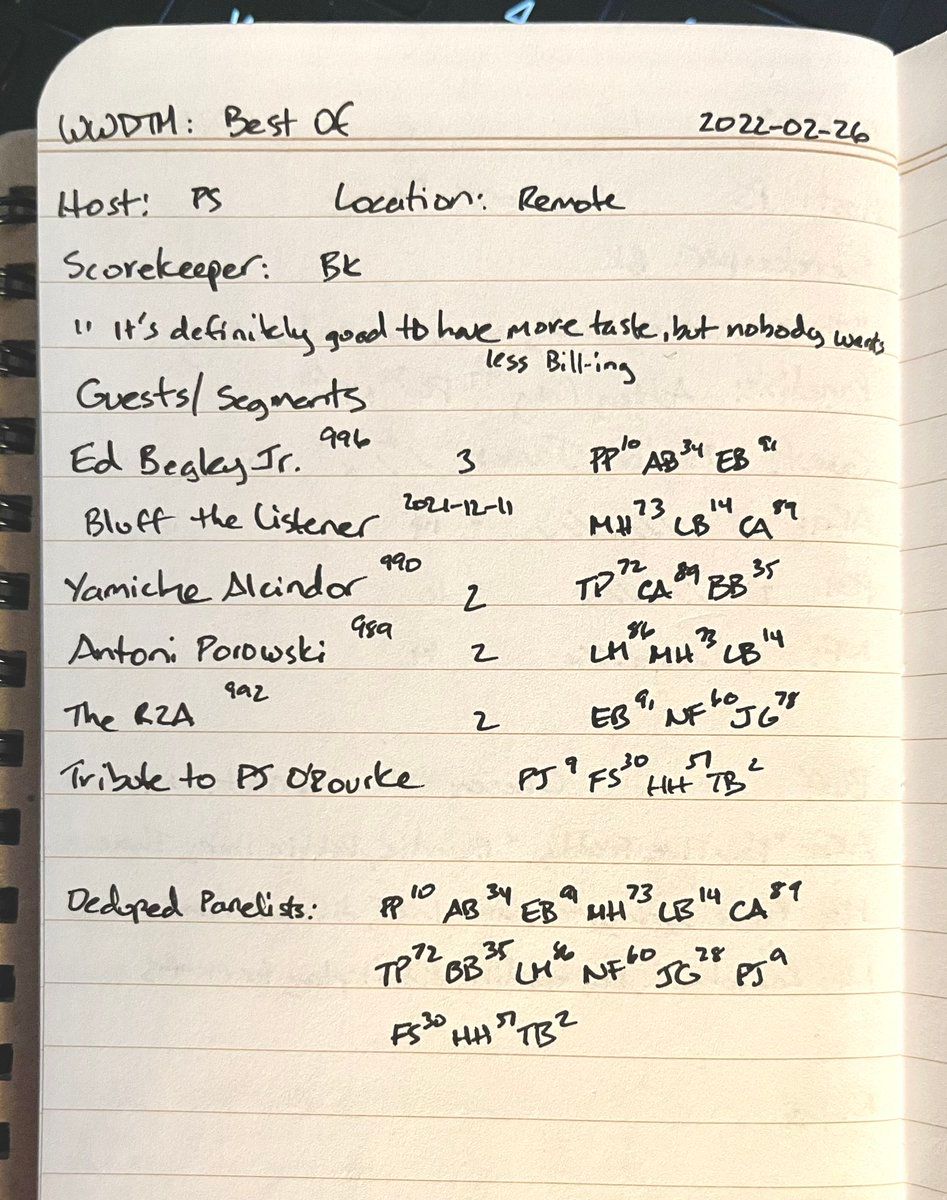 WWDTM: Best Of 2022-02-26
Host: PS Location: Remote
Scorekeeper: BK
"It's definitely good to have more taste, but nobody wants
less Bill-ing
Guests/Segments
Ed Begley Jr. 996 3 PP10 AB34 EB91
Bluff the Listener 2021-12-11 MH73 LB14 CA89
Yamiche Alcindor 990 2 TP72 CA89 BB35
Antoni Porowski 989 2 LM86 MH73 LB14
The RZA 992 2 EB91 NF60 JG78
Tribute to PJ O'Rourke PJ9 FS30 HH57 TB2
Deduped Panelists: PP10 AB34 EB91 MH73 LB14 CA89
TP72 BB35 LM86 NF60 JG28 PJ9
FS30 HH57 TB2